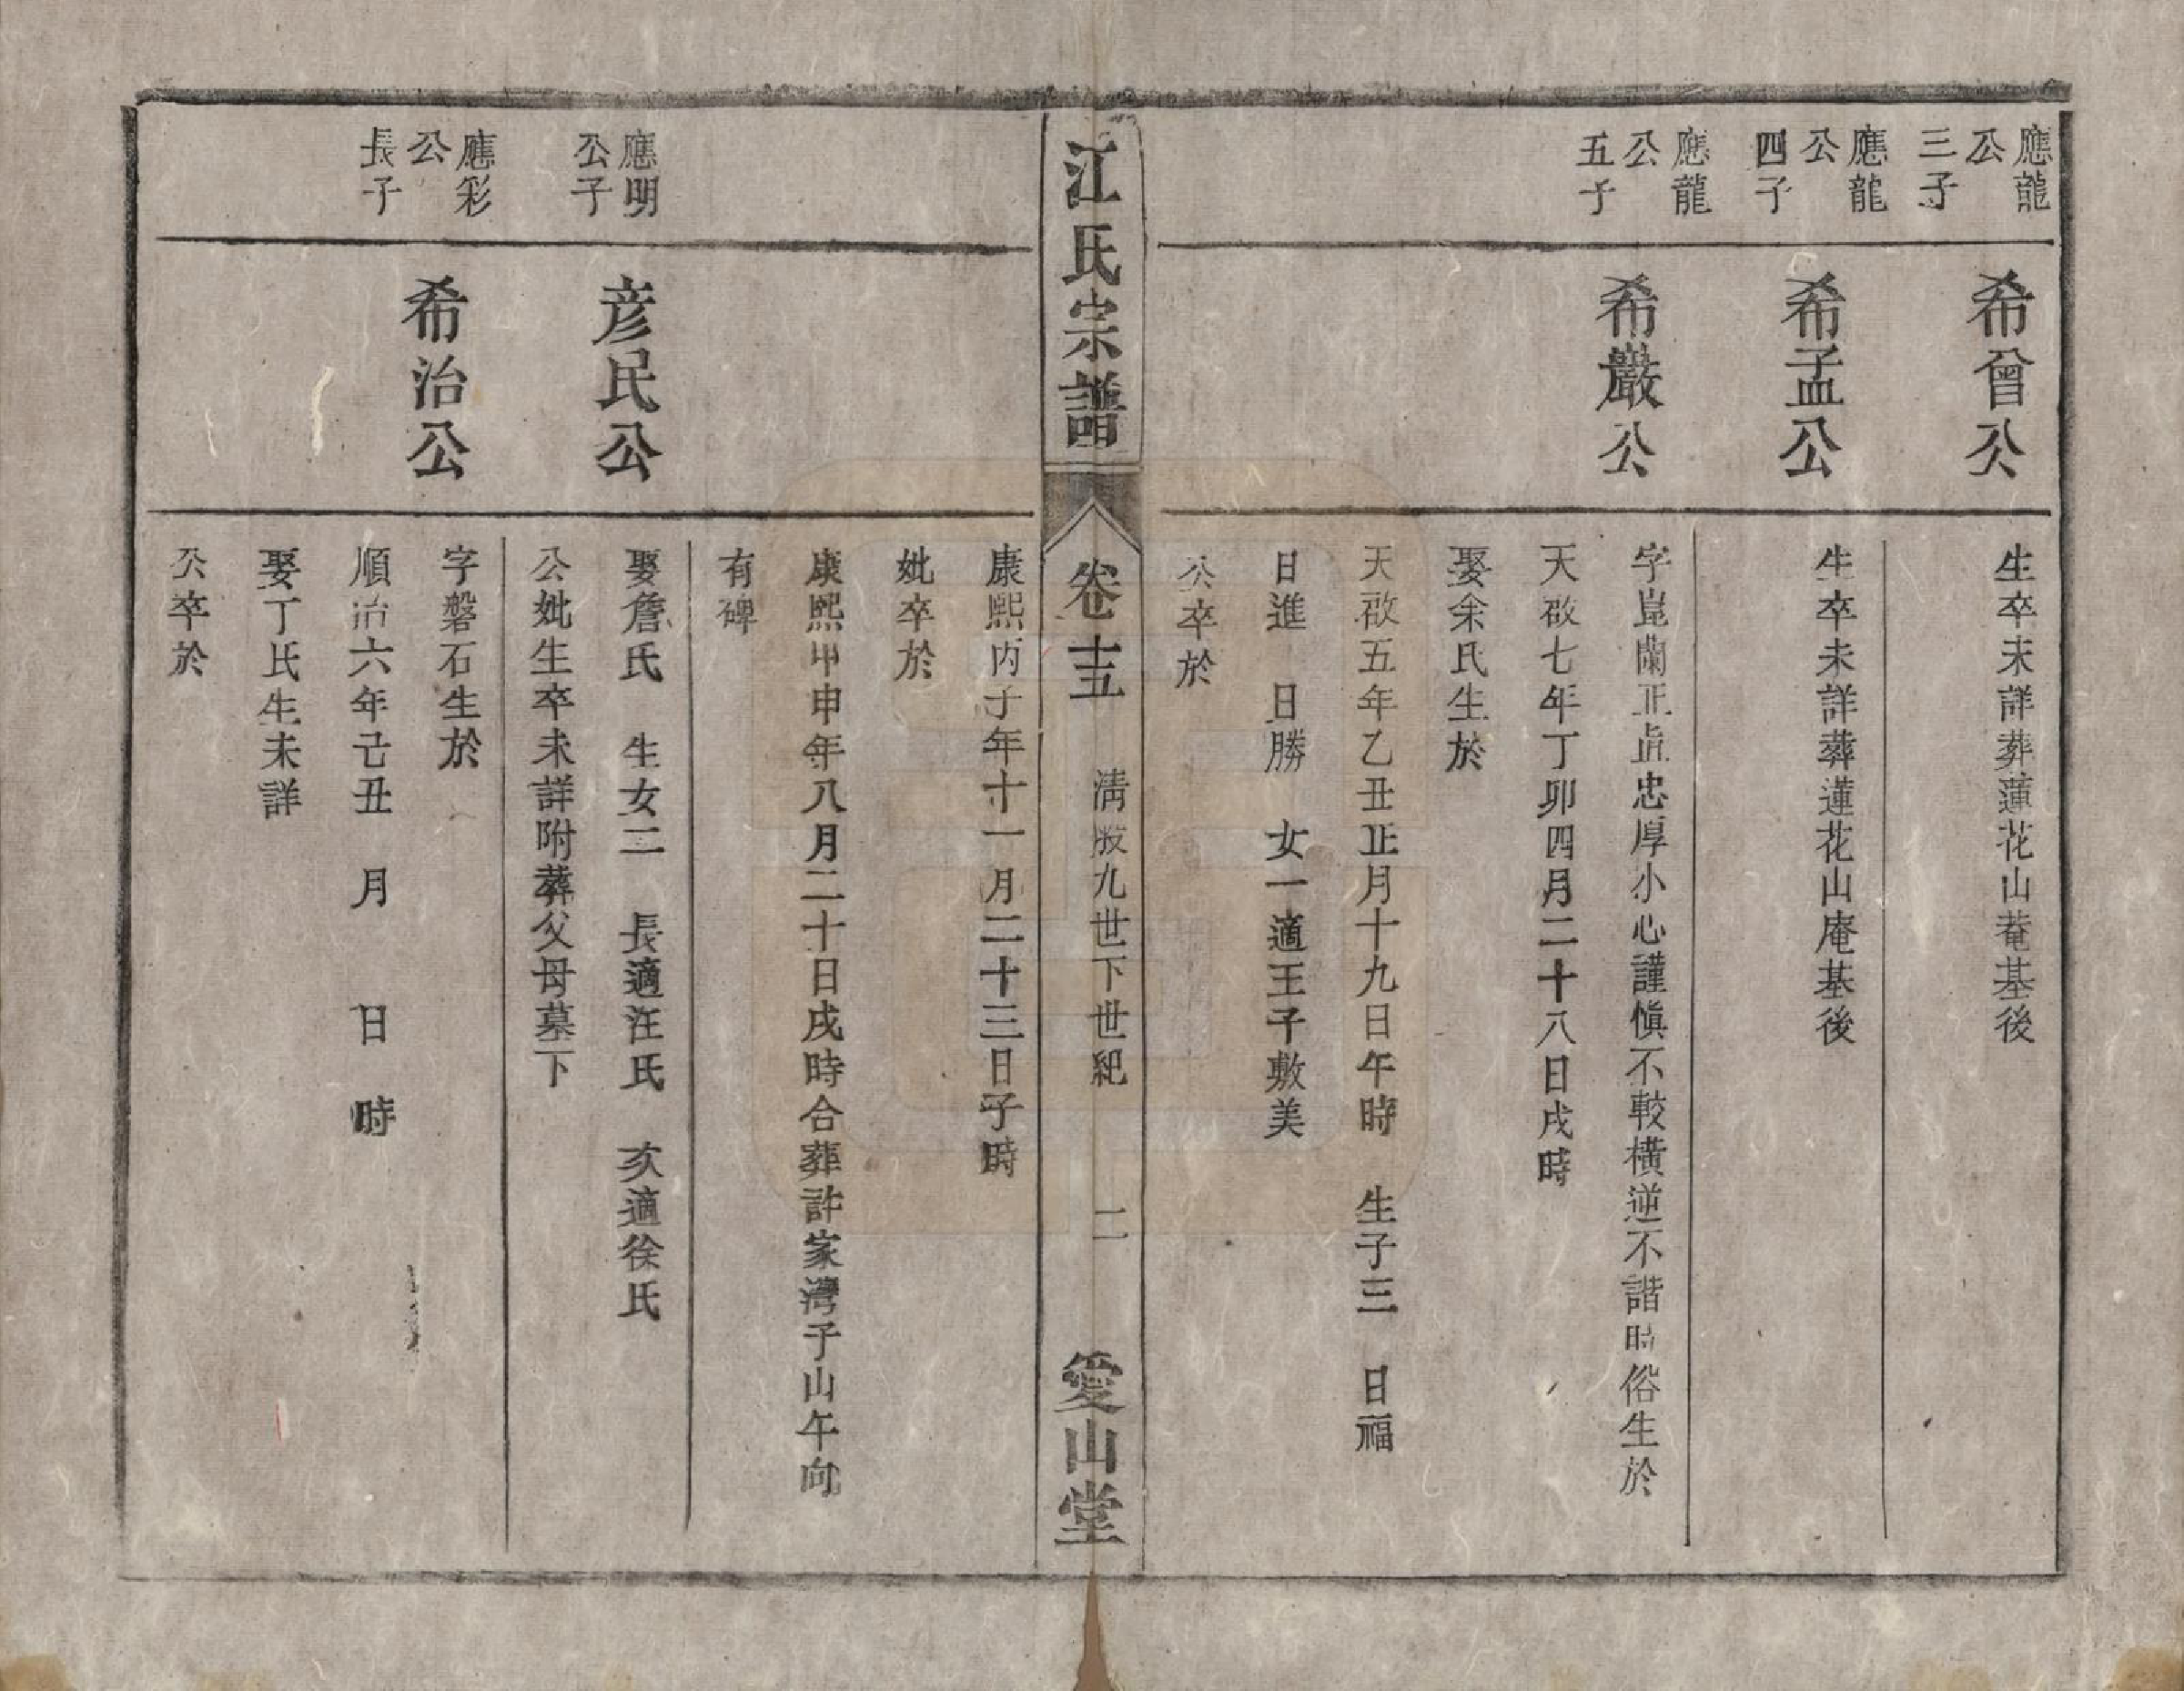 應龍
公
三子
希曾公
生卒未詳葬蓮花山菴基後
應龍
公
四子
希孟公
生卒未詳葬蓮花山庵基後
應龍
公
五子
希巖公
字崑蘭正直忠厚小心謹愼不較橫逆不諧時俗生於
天啟七年丁卯四月二十八日戌時
娶余氏生於
天啟五年乙丑正月十九日午時 生子三 日福
日進 日勝 女一適王子敷美
公卒於
江氏宗譜
卷十五 清股九世下世紀 二 愛山堂
康熙丙子年十一月二十三日子時
妣卒於
康熙甲申年八月二十日戌時合葬許家灣子山午向
有碑
應明
公子
彦民公
娶詹氏 生女二 長適汪氏 次適徐氏
公妣生卒未詳附葬父母墓下
應彩
公
長子
希治公
字磐石生於
順治六年己丑 月 日 時
娶丁氏生未詳
公卒於